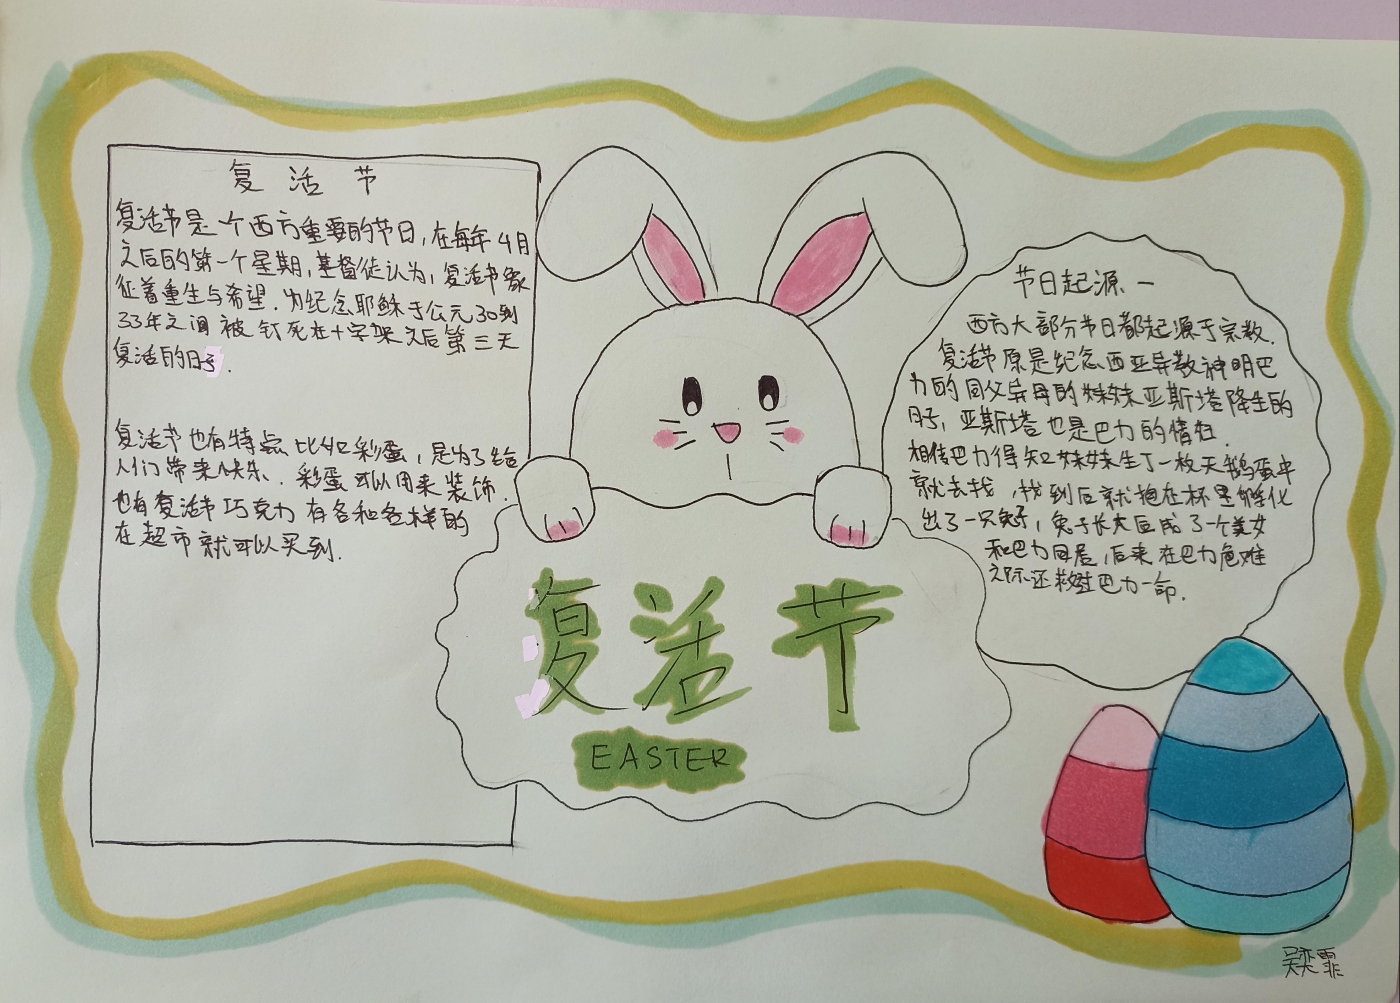 复活节
复活节是一个西方重要的节日,在每年4月
之后的第一个星期,基督徒认为,复活节象
征着重生与希望.为纪念耶稣于公元30到
33年之间被钉死在十字架之后第三天
复活的日子.
复活节也有特点比如彩蛋,是为了给
人们带来快乐.彩蛋可以用来装饰.
也有复活节巧克力有各种各样的
在超市就可以买到.
节日起源一
西方大部分节日都起源于宗教.
复活节原是纪念西亚异教神明巴
力的同父异母的妹妹亚斯塔降生的
日子,亚斯塔也是巴力的情妇.
相传巴力得知妹妹生了一枚天鹅蛋中
就去找,找到后就抱在怀里孵化
出了一只兔子,兔子长大后成了一个美女
和巴力同居,后来在巴力危难
之际还救过巴力一命.
复活节
EASTER
吴奕霏